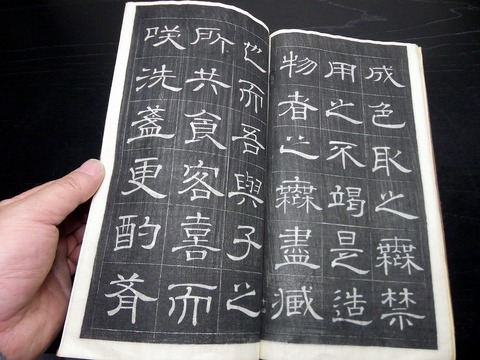 成色取之橆禁
用之不竭是造
物者之橆盡藏
也而吾與子之
所共食客喜而
咲洗盞更酌肴